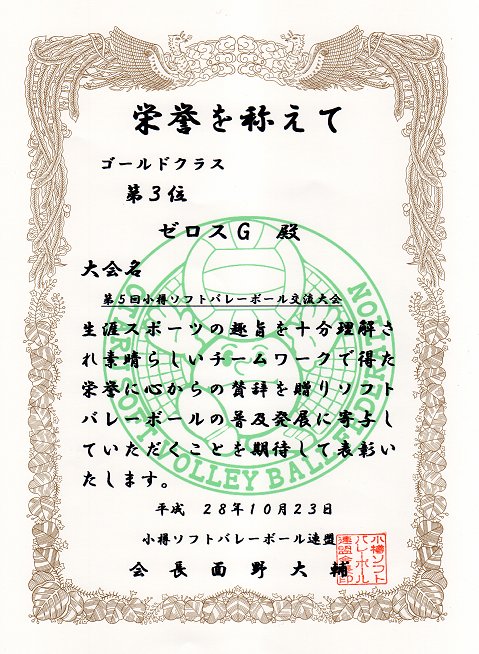 栄誉を称えて
ゴールドクラス
第3位
ゼロスG 殿
大会名
第5回小樽ソフトバレーボール交流大会
生涯スポーツの趣旨を十分理解さ
れ素晴らしいチームワークで得た
栄誉に心からの賛拝を贈りソフト
バレーボールの普及発展に寄与し
ていただくことを期待して表彰い
たします。
平成 28年10月23日
小樽ソフトバレーボール連盟
会長 面野大輔
小樽ソフト
バレーボール
連盟会長印
OTARU SOFT VOLLEY BALL FEDERATION